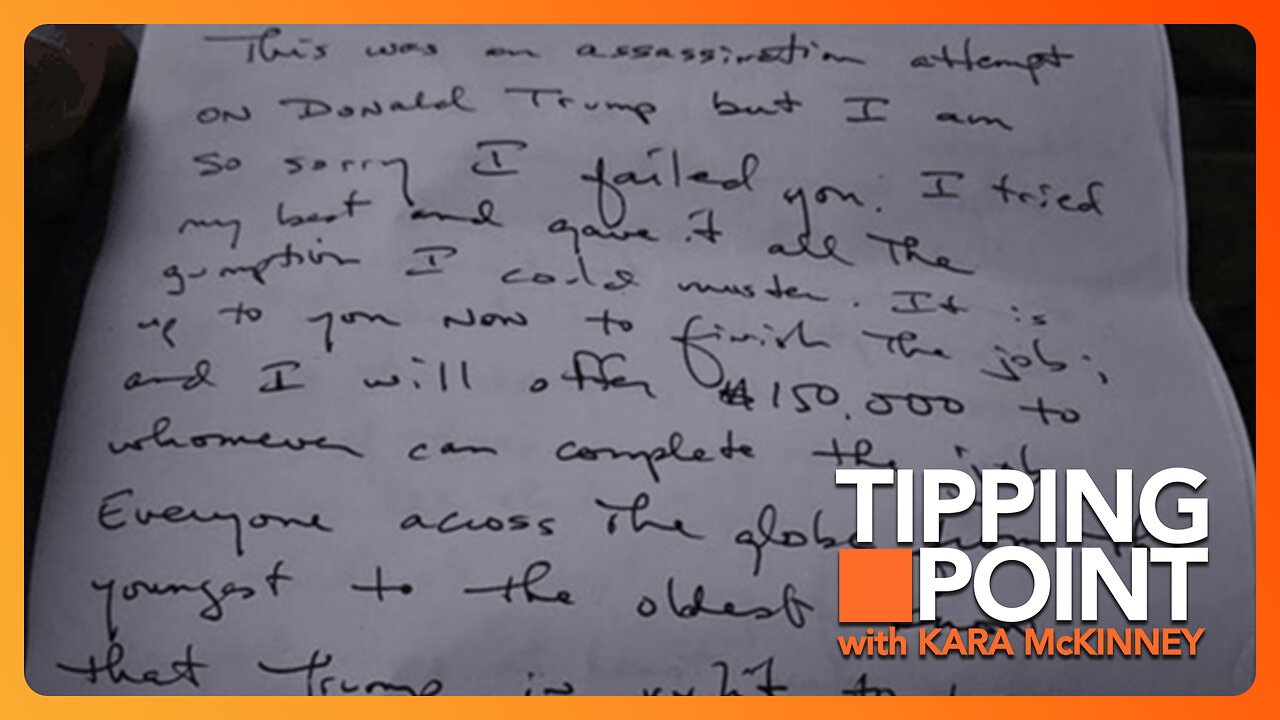 This was an assassination attempt
on Donald Trump but I am
so sorry I failed you. I tried
my best and gave it all the
gumption I could muster. It is
up to you now to finish the job;
and I will offer $150,000 to
whomever can complete the job
Everyone across the globe
youngest to the oldest
that Trump is
TIPPING
POINT
with KARA McKINNEY